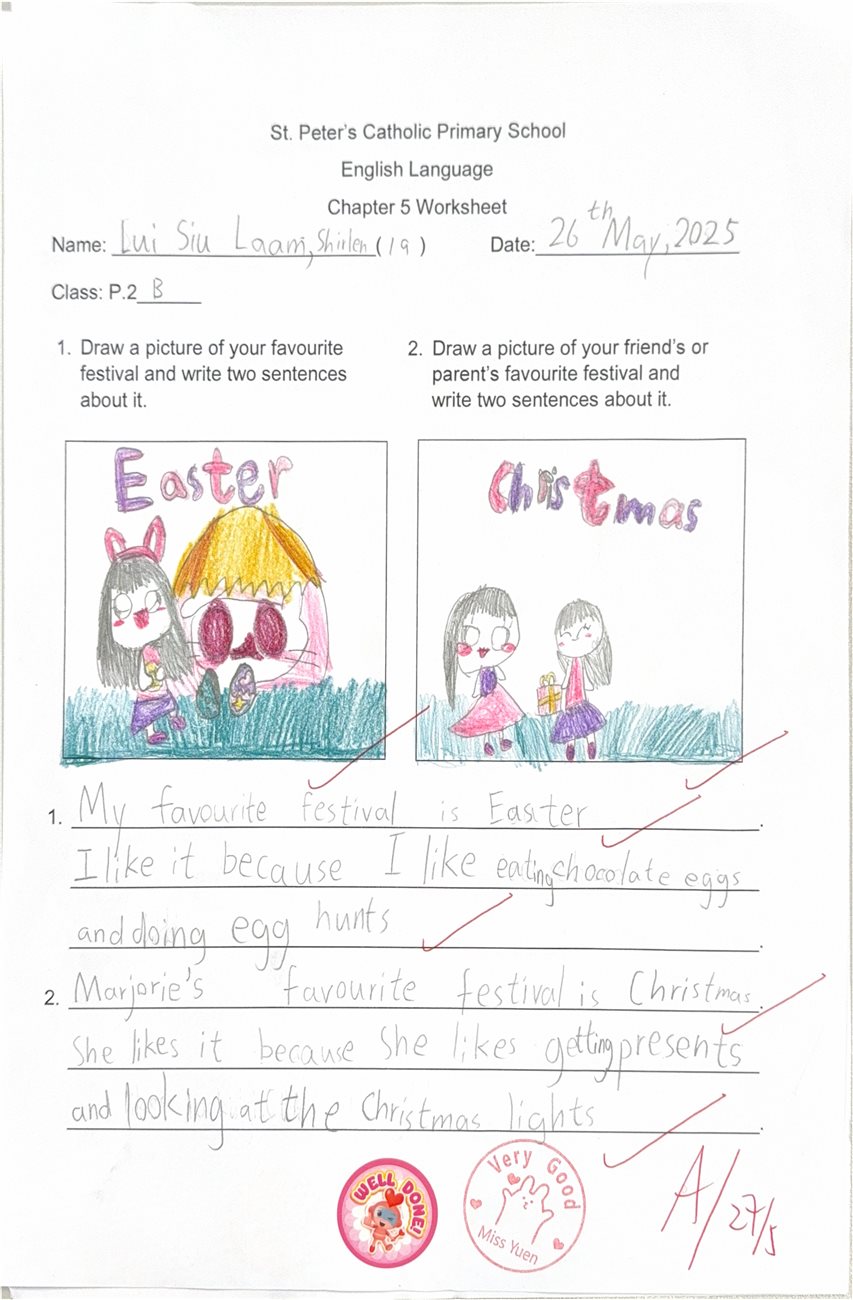 St. Peter's Catholic Primary School
English Language
Chapter 5 Worksheet
Name: Lui Siu Laam, Shirlen (19) Date: 26th May, 2025
Class: P.2 B
1. Draw a picture of your favourite
festival and write two sentences
about it.
2. Draw a picture of your friend's or
parent's favourite festival and
write two sentences about it.
Easter
Christmas
1. My favourite festival is Easter.
I like it because I like eating chocolate eggs
and doing egg hunts.
2. Marjorie's favourite festival is Christmas.
She likes it because she likes getting presents
and looking at the Christmas lights.
WELL DONE!
Very Good
Miss Yuen
A/27/5